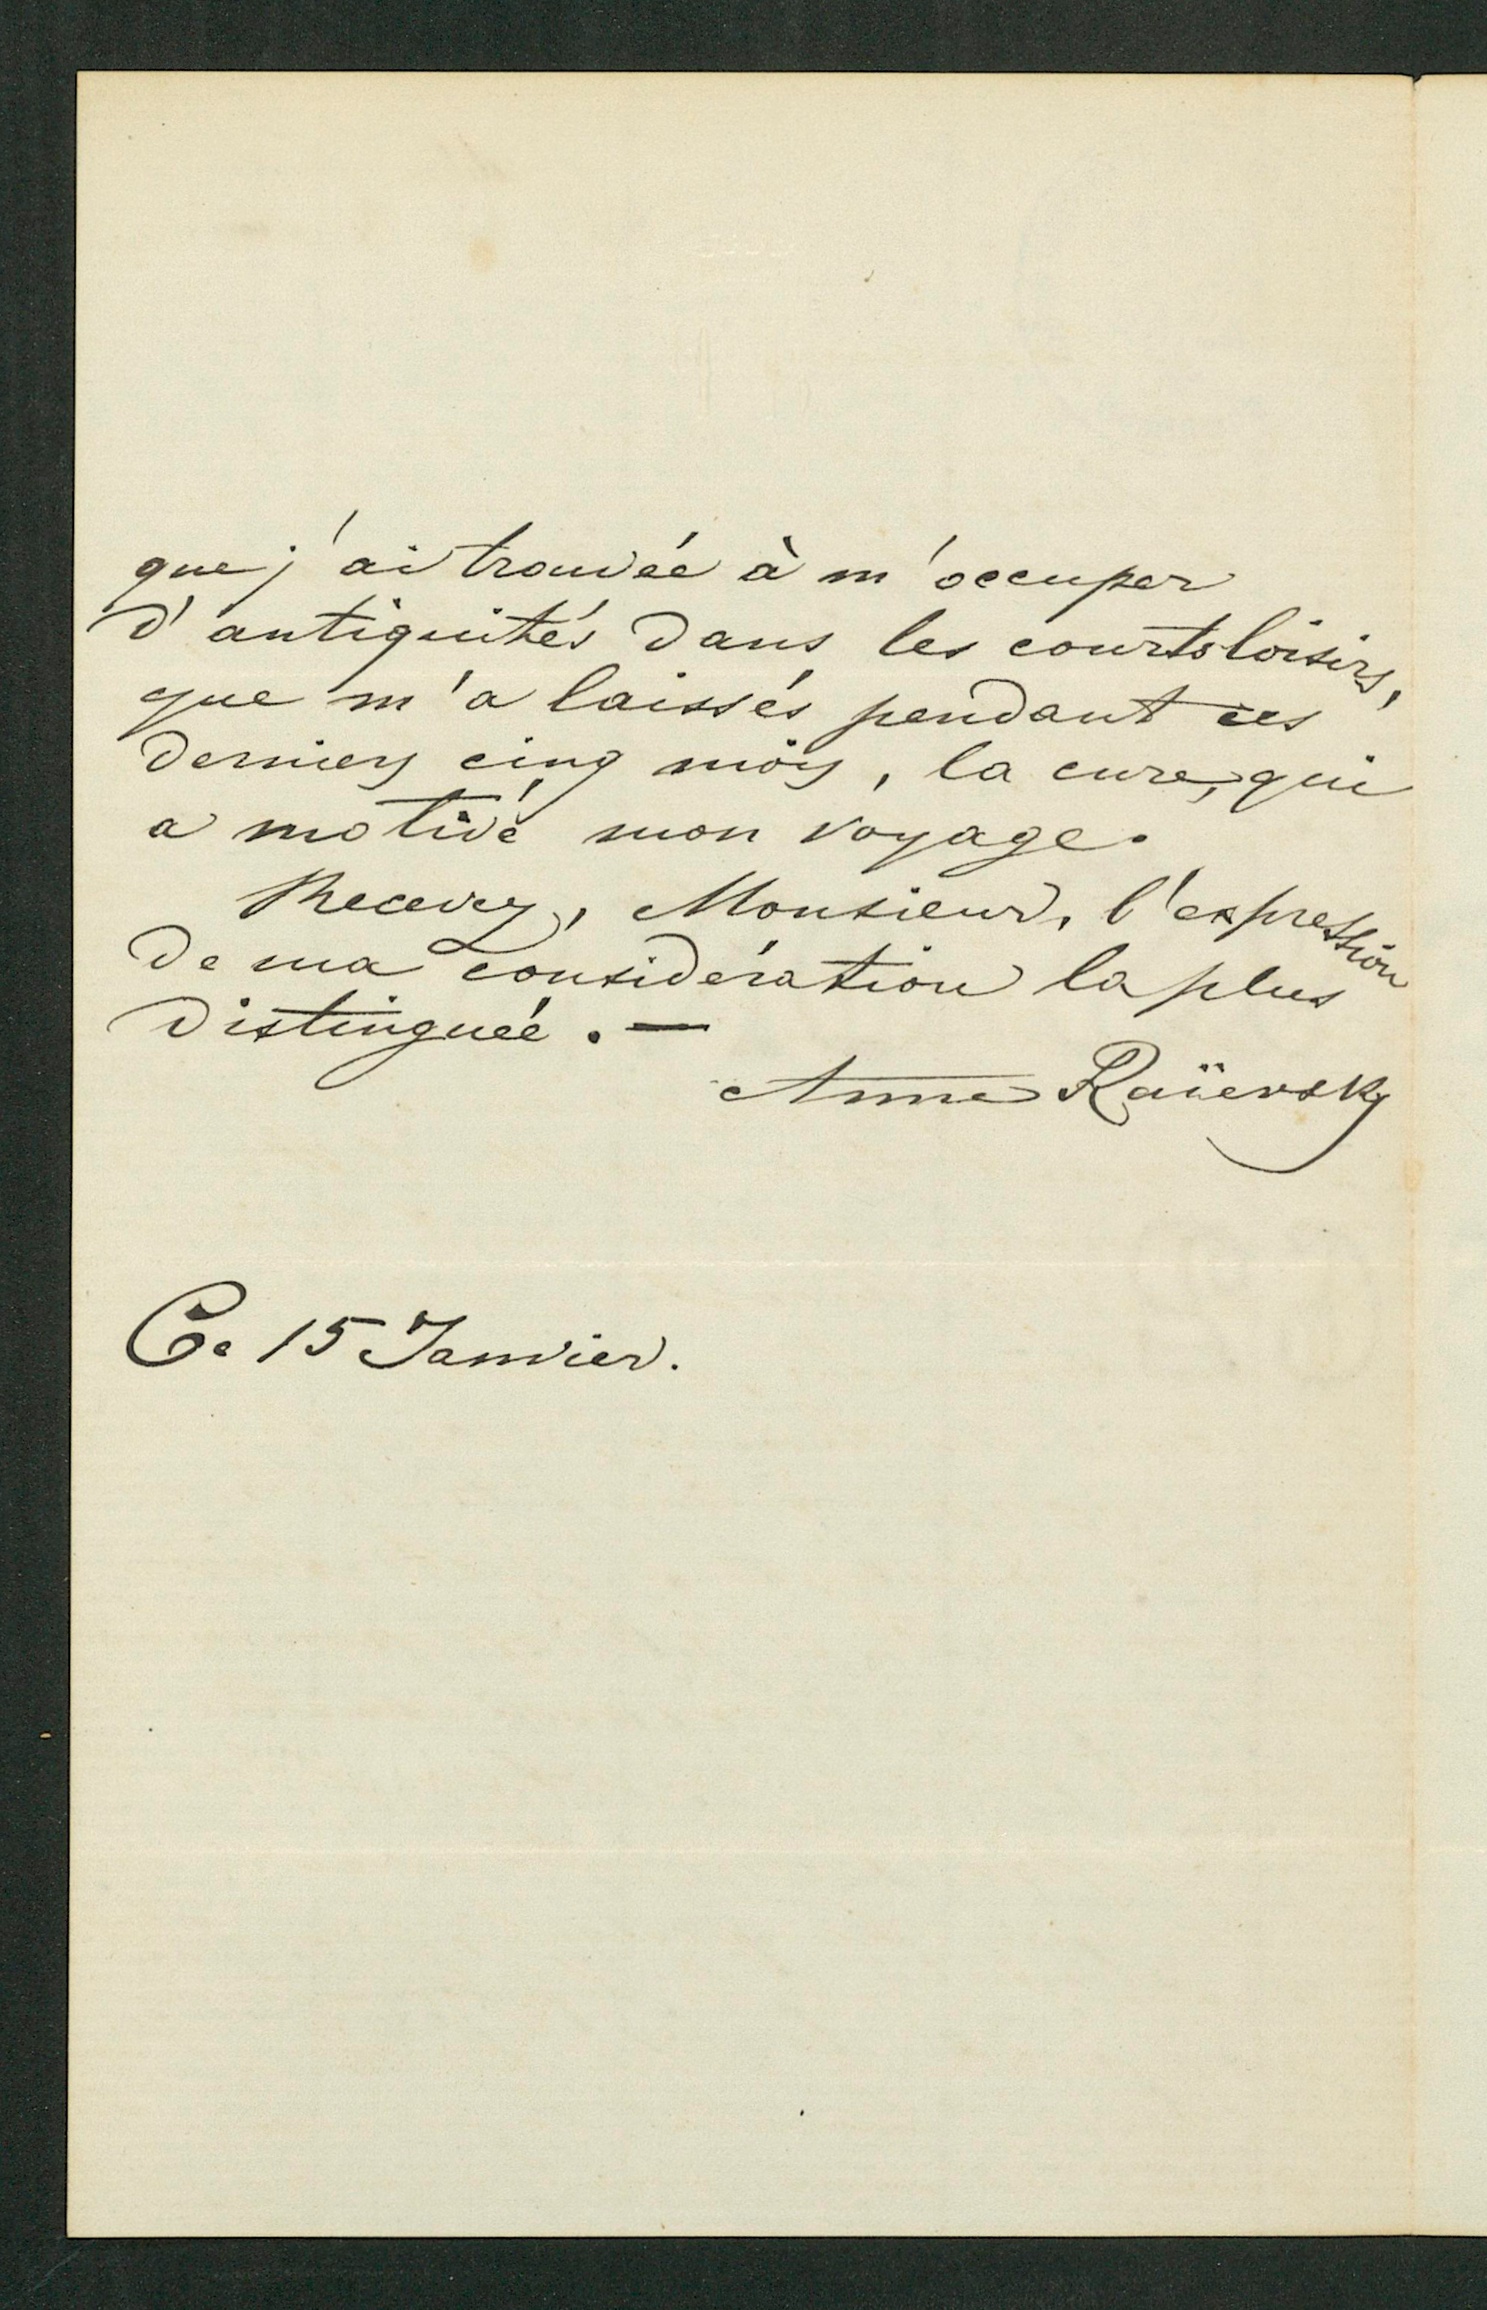 que j'ai trouvée à m'occuper
d'antiquités dans les courts loisirs,
que m'a laissés pendant ces
derniers cinq mois, la cure, qui
a motivé mon voyage.
Recevez, Monsieur, l'expression
de ma considération la plus
distinguée. —
Anna Raïevsky
Ce 15 Janvier.